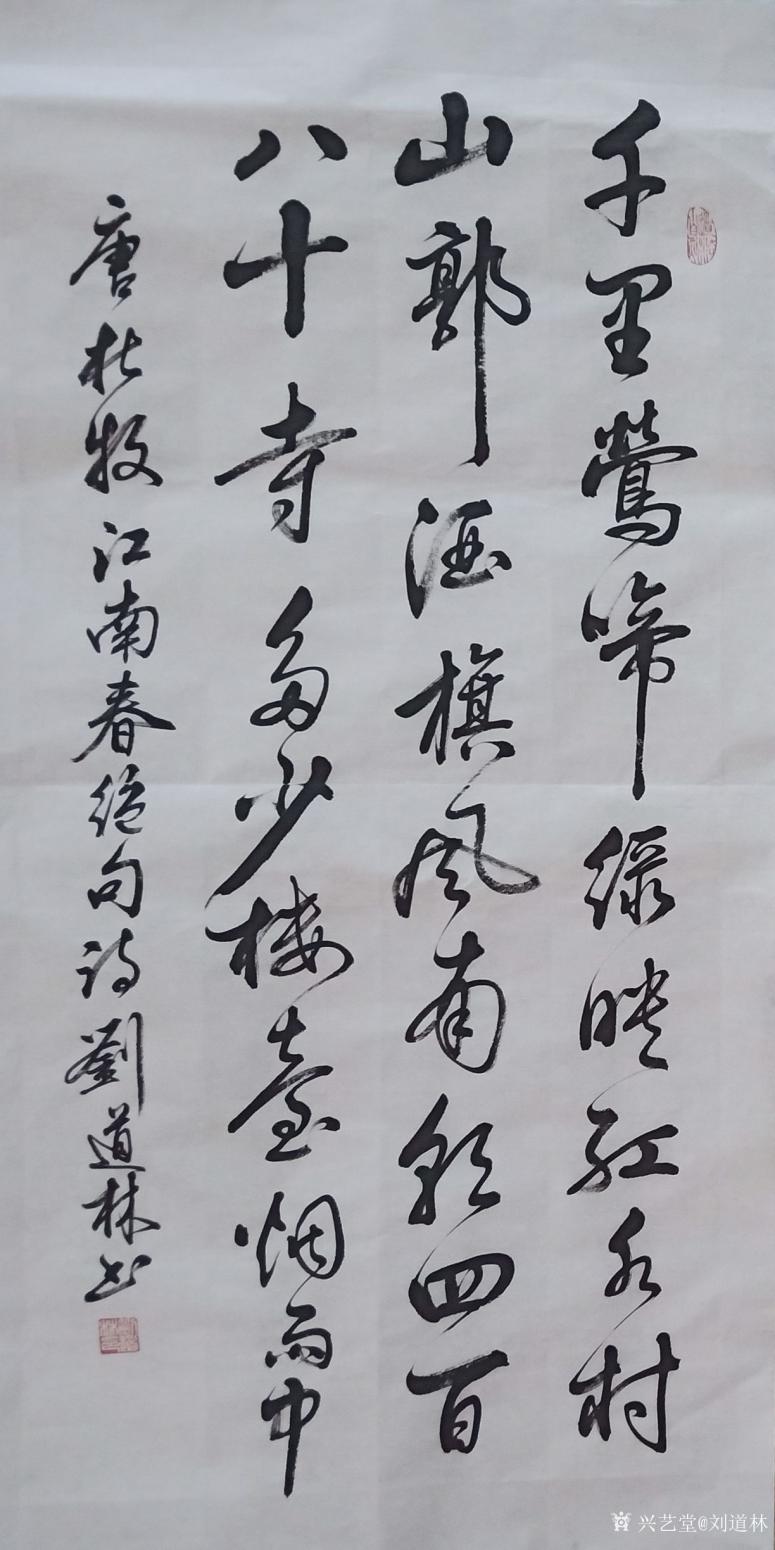 千里鶯啼緑映紅水村
山郭酒旗風南朝四百
八十寺多少樓臺烟雨中
唐杜牧江南春绝句詩劉道林书
兴艺堂@刘道林